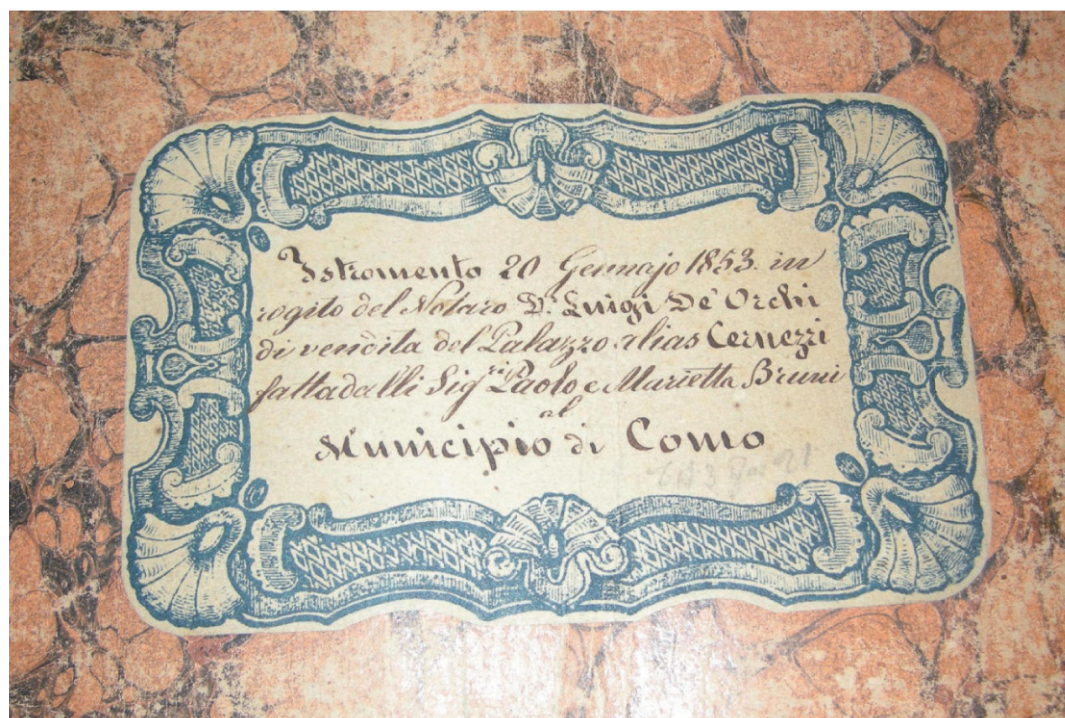 Istromento 20 Gennajo 1853. in
rogito del Notaro D.r Luigi De' Orchi
di vendita del Palazzo alias Cernezzi
fatta dalli Sig.ri Paolo e Marietta Bruni
al
Municipio di Como